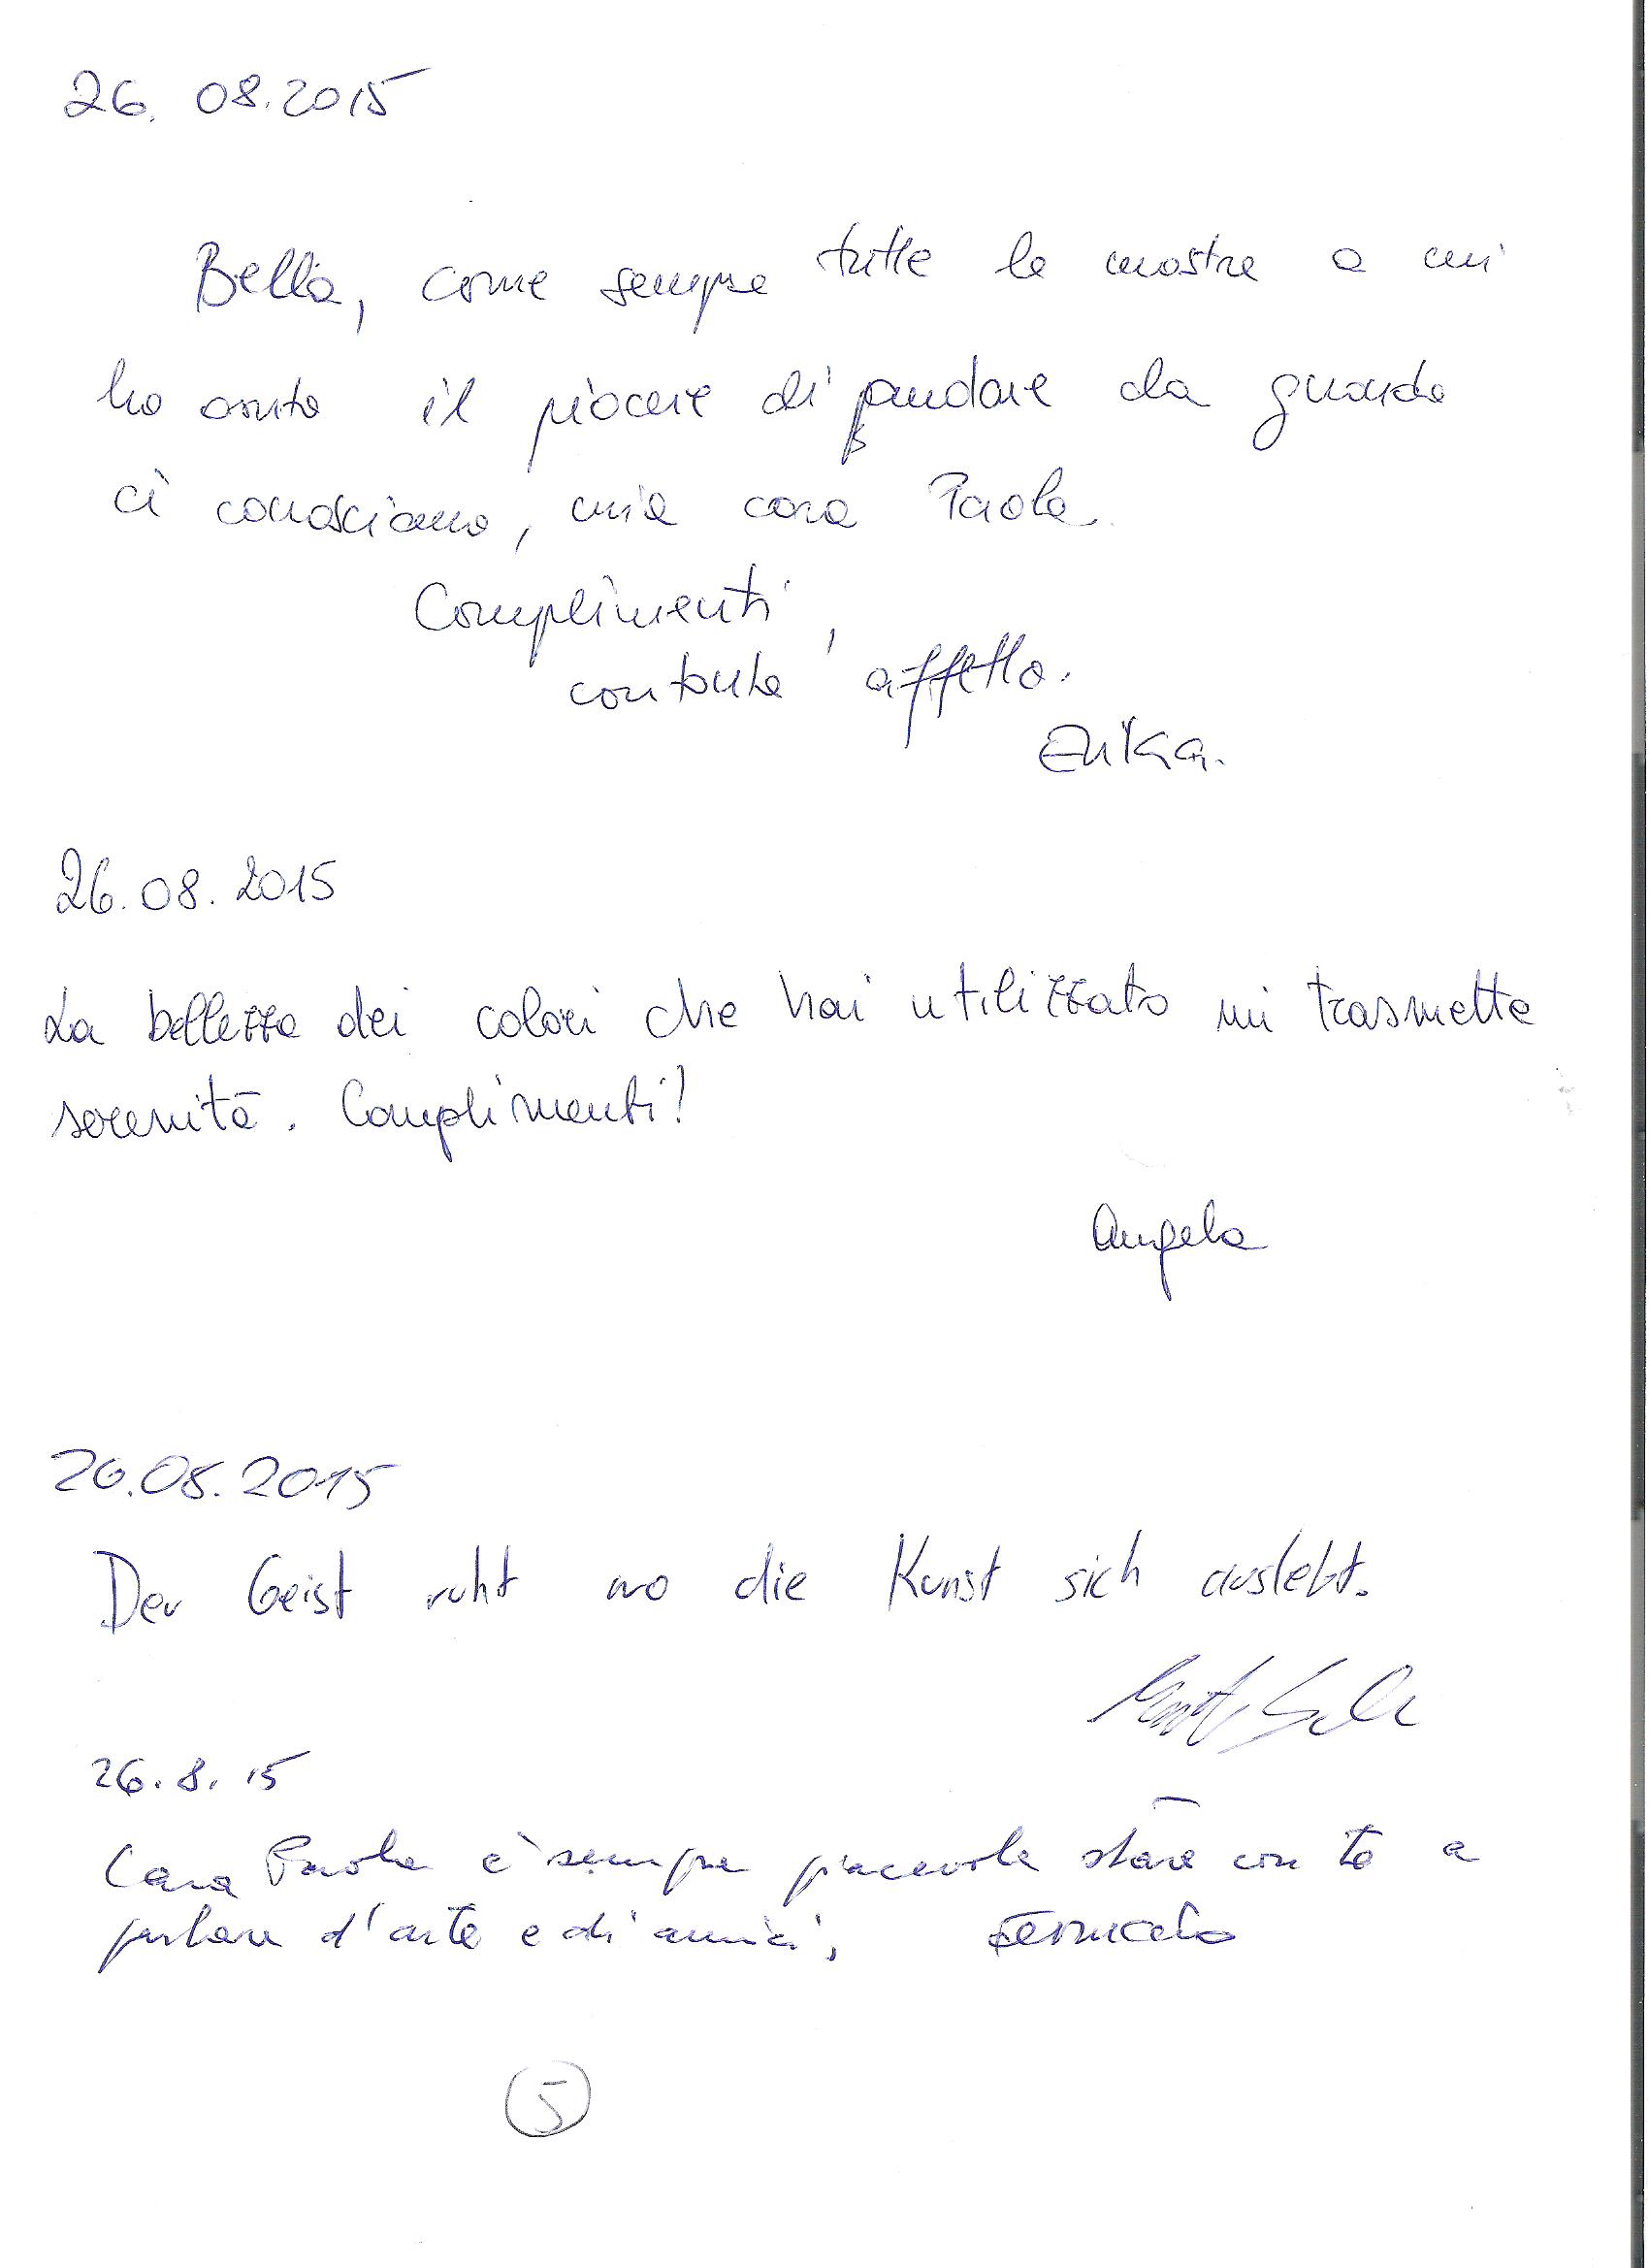 26. 08.2015
Bella, come sempre tutte le mostre a cui
ho avuto il piacere di andare da quando
ci conosciamo, mia cara Paola.
Complimenti,
con tanto affetto.
Erika.
26.08.2015
La bellezza dei colori che hai utilizzato mi trasmette
serenità. Complimenti!
Angela
26.08.2015
Der Geist ruht wo die Kunst sich auslebt.
26.8.15
Cara Paola è sempre piacevole stare con te a
parlare d'arte e di amici,
5